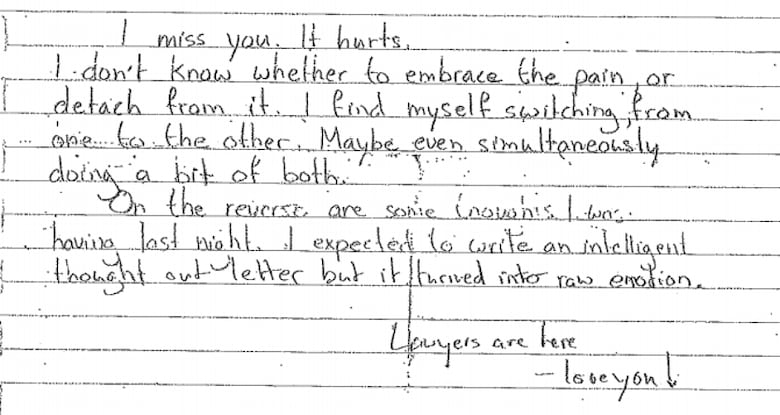 I miss you. It hurts.
I don't know whether to embrace the pain, or
detach from it. I find myself switching from
one to the other. Maybe even simultaneously
doing a bit of both.
On the reverse are some thoughts I was
having last night. I expected to write an intelligent
thought out letter but it turned into raw emotion.
Lawyers are here
- love you